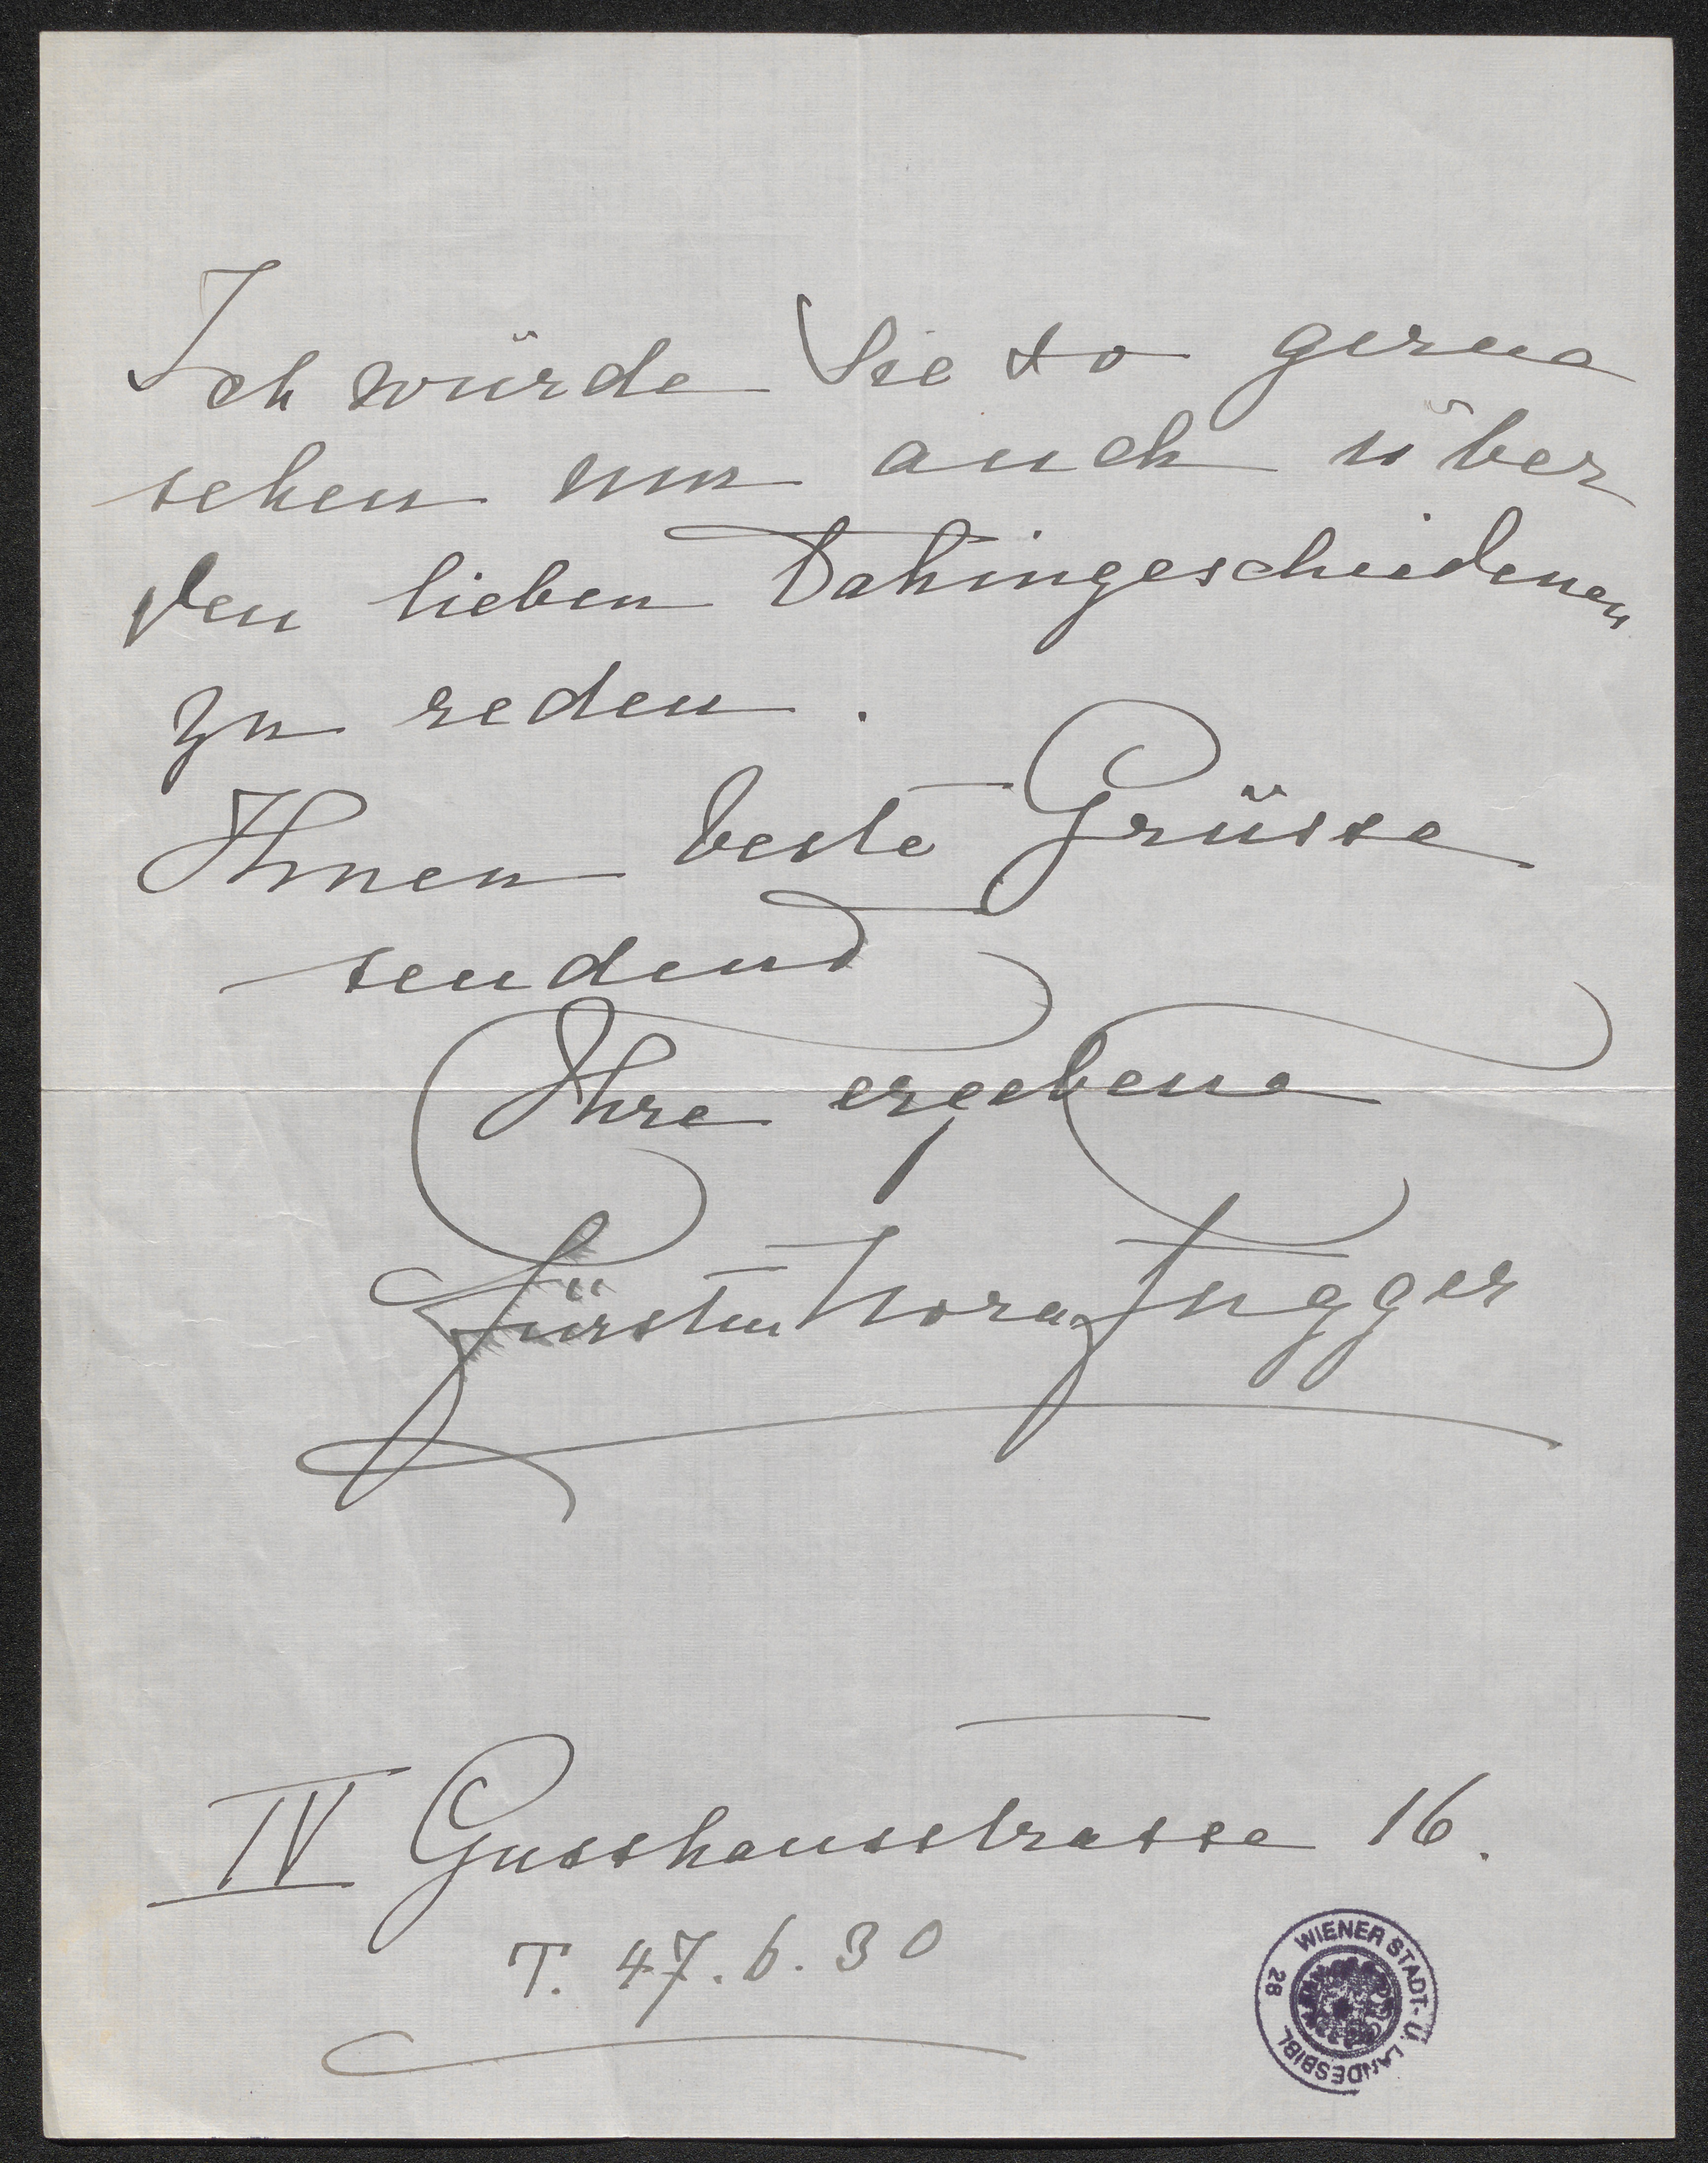 Ich würde Sie so gerne
sehen um auch über
den lieben Dahingeschiedenen
zu reden.
Ihnen beste Grüsse
sendend
Ihre ergebene
Fürstin Nora Fugger
IV Gusshausstrasse 16.
T. 47.6.30
WIENER STADT- U. LANDESBIBL.
26